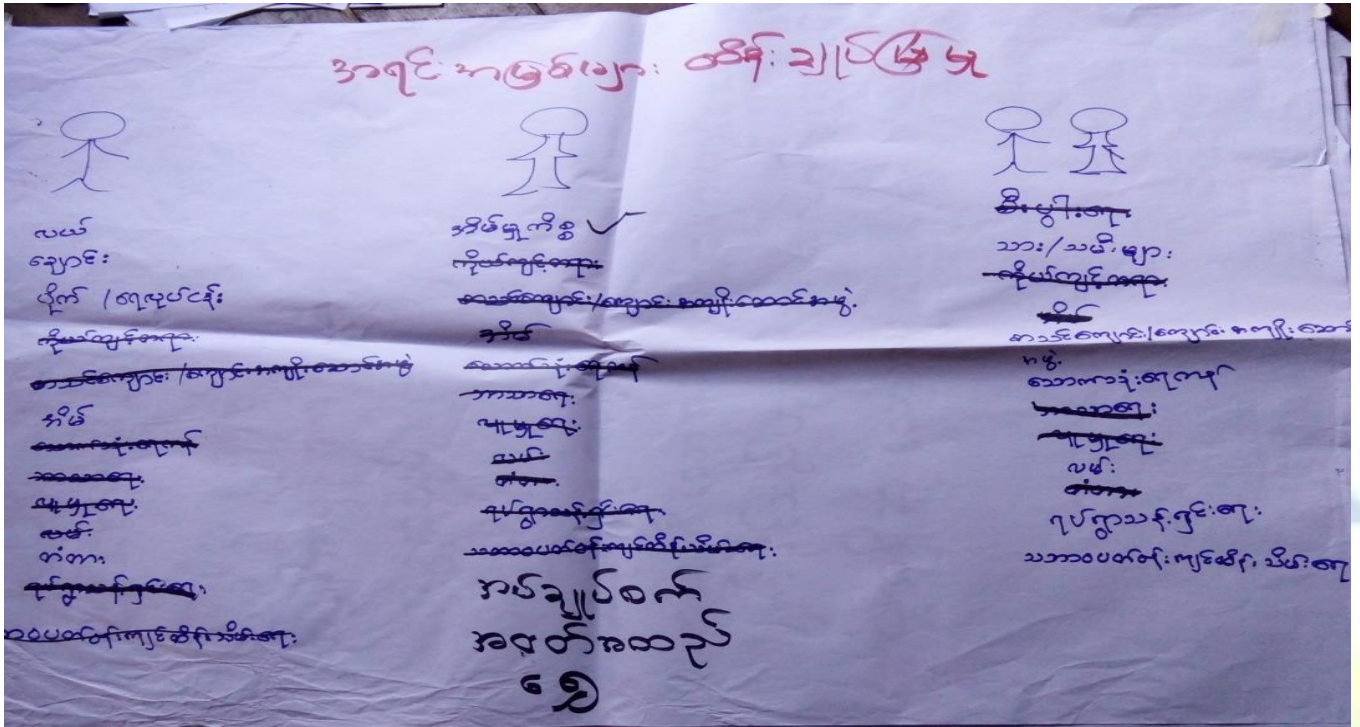 အရင်းအမြစ်များ ထိန်းချုပ်မှု
လယ်
ချောင်း
ပိုက် /ရေလုပ်ငန်း
ကိုယ်ကျင့်တရား
စာသင်ကျောင်း /ကျောင်းအကျိုးဆောင်အဖွဲ့
အိမ်
သောက်သုံးရေကန်
ဘာသာရေး
လူမှုရေး
လမ်း
တံတား
ရပ်ရွာသန့်ရှင်းရေး
ပတ်ဝန်းကျင်ထိန်းသိမ်းရေး
အိမ်မှုကိစ္စ
ကိုယ်ကျင့်တရား
စာသင်ကျောင်း/ကျောင်းအကျိုးဆောင်အဖွဲ့
အိမ်
သောက်သုံးရေကန်
ဘာသာရေး
လူမှုရေး
လမ်း
တံတား
ရပ်ရွာသန့်ရှင်းရေး
သဘာဝပတ်ဝန်းကျင်ထိန်းသိမ်းရေး
အပ်ချုပ်စက်
အဝတ်အထည်
ရွှေ
စီးပွါးရေး
သား/သမီးများ
ကိုယ်ကျင့်တရား
အိမ်
စာသင်ကျောင်း/ကျောင်းအကျိုးဆောင်
အဖွဲ့
သောက်သုံးရေကန်
ဘာသာရေး
လူမှုရေး
လမ်း
တံတား
ရပ်ရွာသန့်ရှင်းရေး
သဘာဝပတ်ဝန်းကျင်ထိန်းသိမ်းရေး